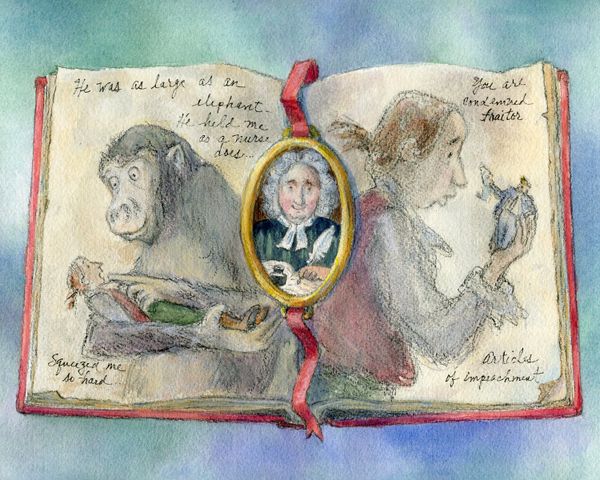 He was as large as an
elephant
He held me
as a nurse
does...
Squeezed me
so hard...
You are
condemned
traitor
articles
of impeachment